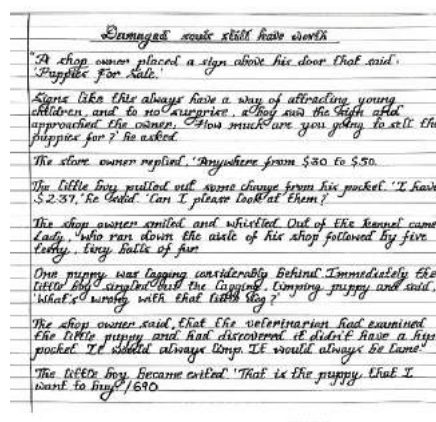 Damaged souls still have worth
"A shop owner placed a sign above his door that said:
'Puppies For Sale.'
Signs like this always have a way of attracting young
children, and to no surprise, a boy saw the sign and
approached the owner; 'How much are you going to sell the
puppies for?' he asked
The store owner replied, 'Anywhere from $30 to $50.
The little boy pulled out some change from his pocket. 'I have
$2.37,' he said. 'Can I please look at them?'
The shop owner smiled and whistled. Out of the kennel came
Lady, who ran down the aisle of his shop followed by five
teeny, tiny balls of fur
One puppy was lagging considerably behind. Immediately the
little boy singled out the lagging, limping puppy and said,
'What's wrong with that little dog?'
The shop owner said, that the veterinarian had examined
the little puppy and had discovered it didn't have a hip
pocket It would always limp. It would always be lame.
The little boy became exited. 'That is the puppy that I
want to buy!'/690